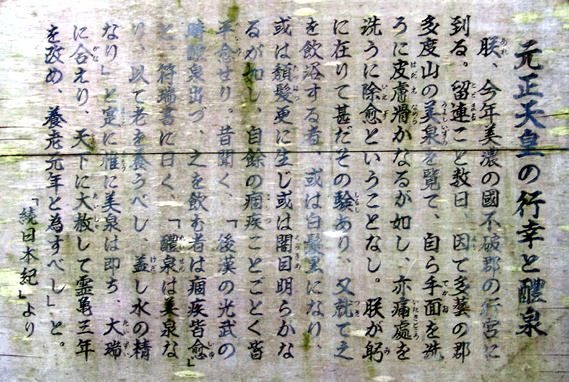 元正天皇の行幸と醴泉
朕、今年美濃の國不破郡の行宮に
到る。留連こと数日、因て多藝の郡
多度山の美泉を覧て、自ら手面を洗
ろに皮膚滑かなるが如し、亦痛處を
洗うに除愈ということなし。朕が躬
に在りて甚だその験あり、又就て之
を飲浴する者、或は白髪黒になり、
或は頽髪更に生じ或は闇目明らかな
るが如し、自餘の痼疾ことごとく皆
平愈せり、昔聞く、「後漢の光武の
時醴泉出づ、之を飲む者は痼疾皆愈」
と、符瑞書に曰く、「醴泉は美泉な
り、以て老を養うべし、盖し水の精
なり」と寔に惟に美泉は即ち、大瑞
に合えり、天下に大赦して霊亀三年
を改め、養老元年と為すべし」と。
「續日本紀」より